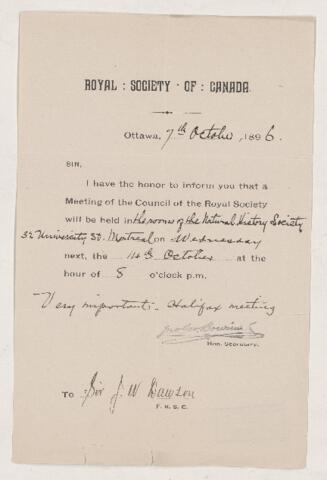 ROYAL : SOCIETY · OF : CANADA.
Ottawa, 7th October, 1896.
SIR,
I have the honor to inform you that a
Meeting of the Council of the Royal Society
will be held in the rooms of the Natural History Society
32 University St. Montreal on Wednesday
next, the 14th October at the
hour of 8 o'clock p.m.
Very important - Halifax meeting
Hon. Secretary.
To Sir J. W Dawson
F. R. S. C.